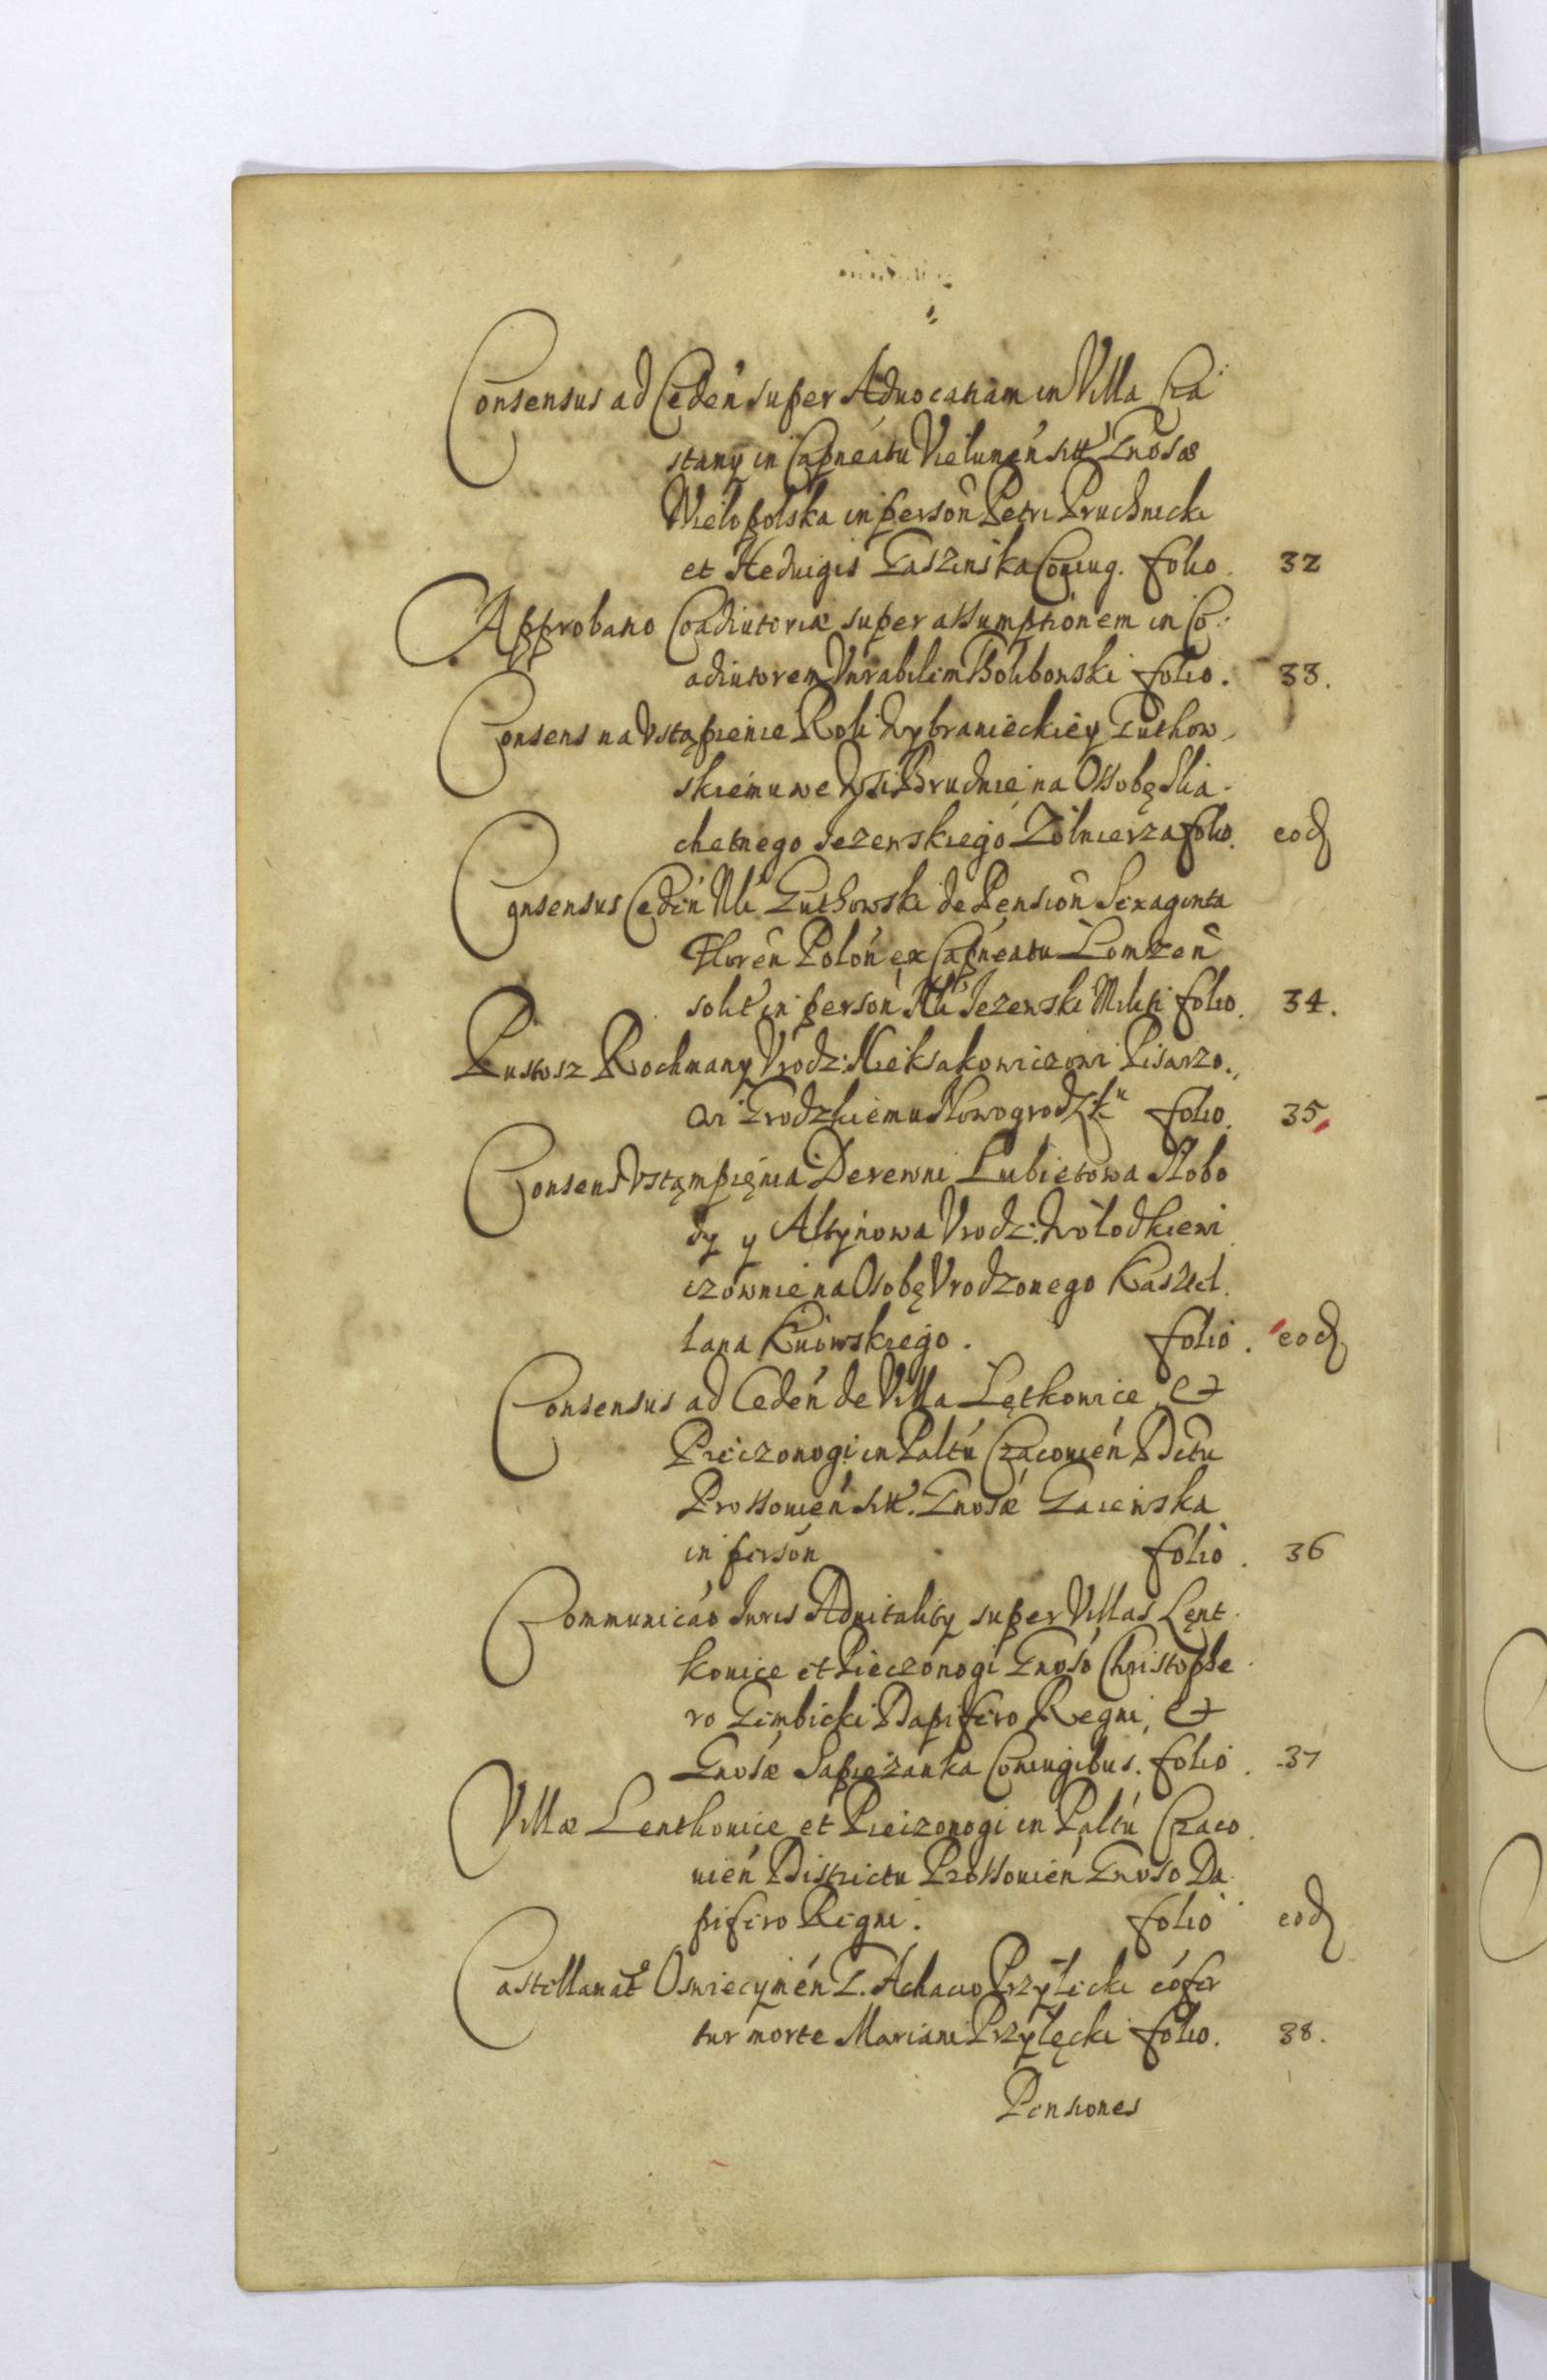 Consensus ad Cedeń super Aduocatiam in Villa Cza
stary in Capneatu Vielunen sitt Gnosæ
Wielopolska in person Petri Pruchnicki
et Heduigis Gaszinska Coniug. folio. 32
Approbatio Coadiutoriæ super assumptionem in Co:
adiutorem Vnrabilem Bolibowski folio. 33.
Consens na Vstąpienie Roli Wybranieckiey Gutkow
skiemu we Wsi Brudnie na Ossobę Slia
chetnego Jezewskiego Zołnierza folio. eod
Consensus Cedeń Nli Gutkowski de Pension Sexaginta
Floreń Poloń ex Capneatu Lomzeń
solit in person Nli Jezewski Militi folio. 34.
Pustosz Rochmany Vrodz: Kieksakowiczowi Pisarzo.,
wi Grodzkiemu Nowogrodzku folio. 35
Consens Vstąmpięnia Derewni Lubietowa Słobo
dy y Altynowa Vrodz: Wołodkiewi
czownie na Osobę Vrodzonego Kasztel.
lana Kiiowskiego. folio. eod
Consensus ad Cedeń de Villa Lętkowice et
Pieczonogi in Paltu Czacouień Dictu
Prossouień sitt. Gnosæ Gaienska
in person folio. 36
Communicáo Iuris Aduitality super Villas Lęnt
kouice et Pieczonogi Gnoso Christophe
ro Gembicki Dapifero Regni, et
Gnosæ Sapiezanka Coniugibus. folio. 37
Villæ Lentkouice et Pieczonogi in Paltu Czaco
uień Districtu Prossouień Gnoso Da
pifero Regni. folio eod
Castellanat Oswiecymén G. Achacio Przyłecki cófer
tur morte Mariani Przyłęcki folio. 38.
Pensiones